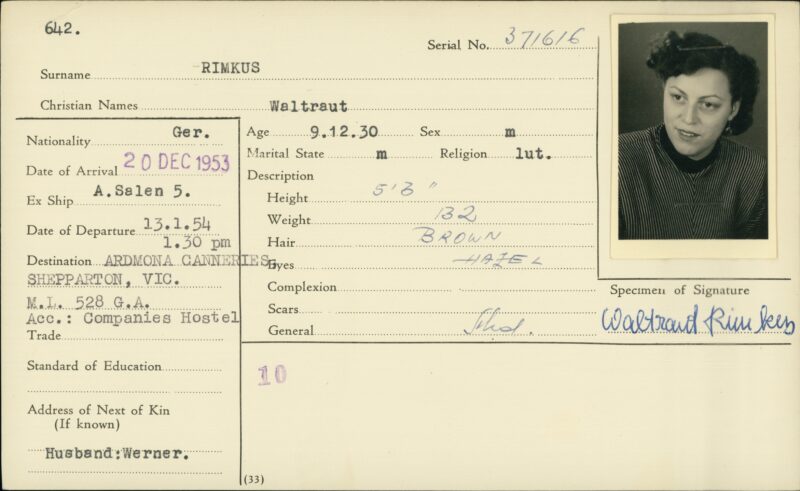 642.
Serial No. 371616
Surname RIMKUS
Christian Names Waltraut
Nationality Ger.
Date of Arrival 20 DEC 1953
Ex Ship A.Salen 5.
Date of Departure 13.1.54
1.30 pm
Destination ARDMONA CANNERIES
SHEPPARTON, VIC.
M.L. 528 G.A.
Acc.: Companies Hostel
Trade
Standard of Education
Address of Next of Kin
(If known)
Husband:Werner.
Age 9.12.30 Sex m
Marital State m Religion lut.
Description
Height 5'3"
Weight 132
Hair BROWN
Eyes HAZEL
Complexion
Scars
General
10
(33)
Specimen of Signature
Waltraud Rimkus